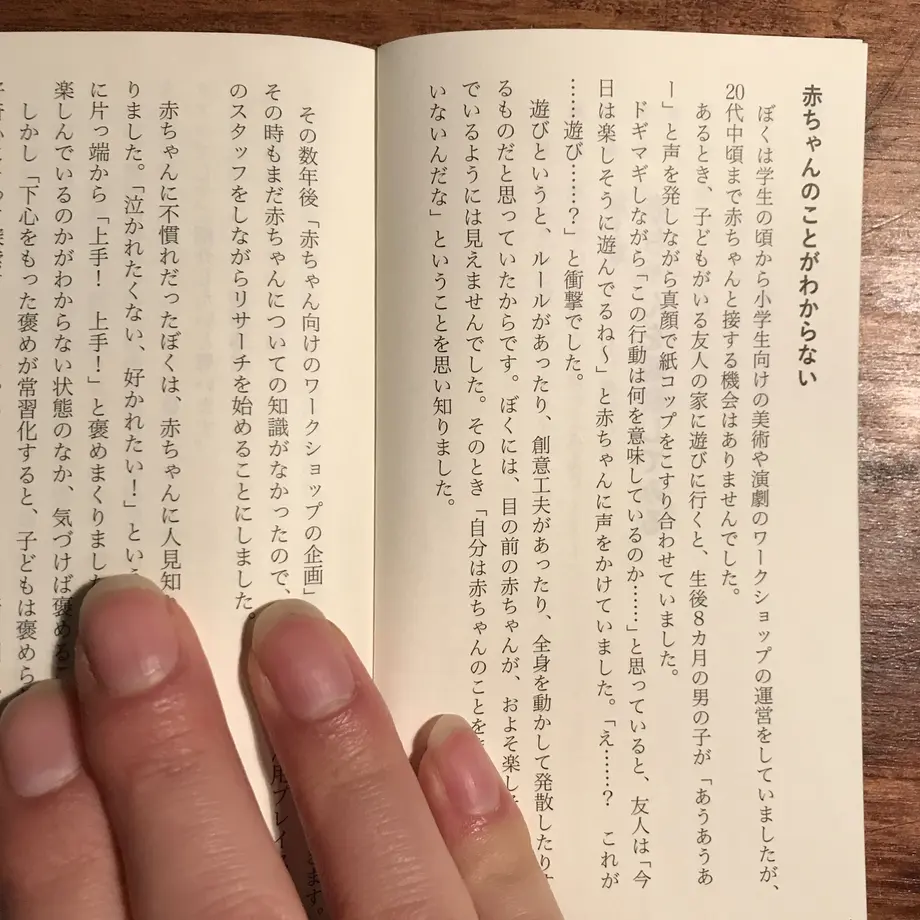 赤ちゃんのことがわからない
ぼくは学生の頃から小学生向けの美術や演劇のワークショップの運営をしていましたが、
20代中頃まで赤ちゃんと接する機会はありませんでした。
あるとき、子どもがいる友人の家に遊びに行くと、生後８カ月の男の子が「あうあうあ
ー」と声を発しながら真顔で紙コップをこすり合わせていました。
ドギマギしながら「この行動は何を意味しているのか……」と思っていると、友人は「今
日は楽しそうに遊んでるね〜」と赤ちゃんに声をかけていました。「え……？　これが
……遊び……？」と衝撃でした。
遊びというと、ルールがあったり、創意工夫があったり、全身を動かして発散したりす
るものだと思っていたからです。ぼくには、目の前の赤ちゃんが、およそ楽し
でいるようには見えませんでした。そのとき「自分は赤ちゃんのことを
いないんだな」ということを思い知りました。
その数年後「赤ちゃん向けのワークショップの企画」
ます。
その時もまだ赤ちゃんについての知識がなかったので、
用プレイ
のスタッフをしながらリサーチを始めることにしました。
赤ちゃんに不慣れだったぼくは、赤ちゃんに人見知
りました。「泣かれたくない、好かれたい！」とい
に片っ端から「上手！　上手！」と褒めまくりまし
楽しんでいるのかがわからない状態のなか、気づけば褒める
しかし「下心をもった褒めが常習化すると、子どもは褒めら